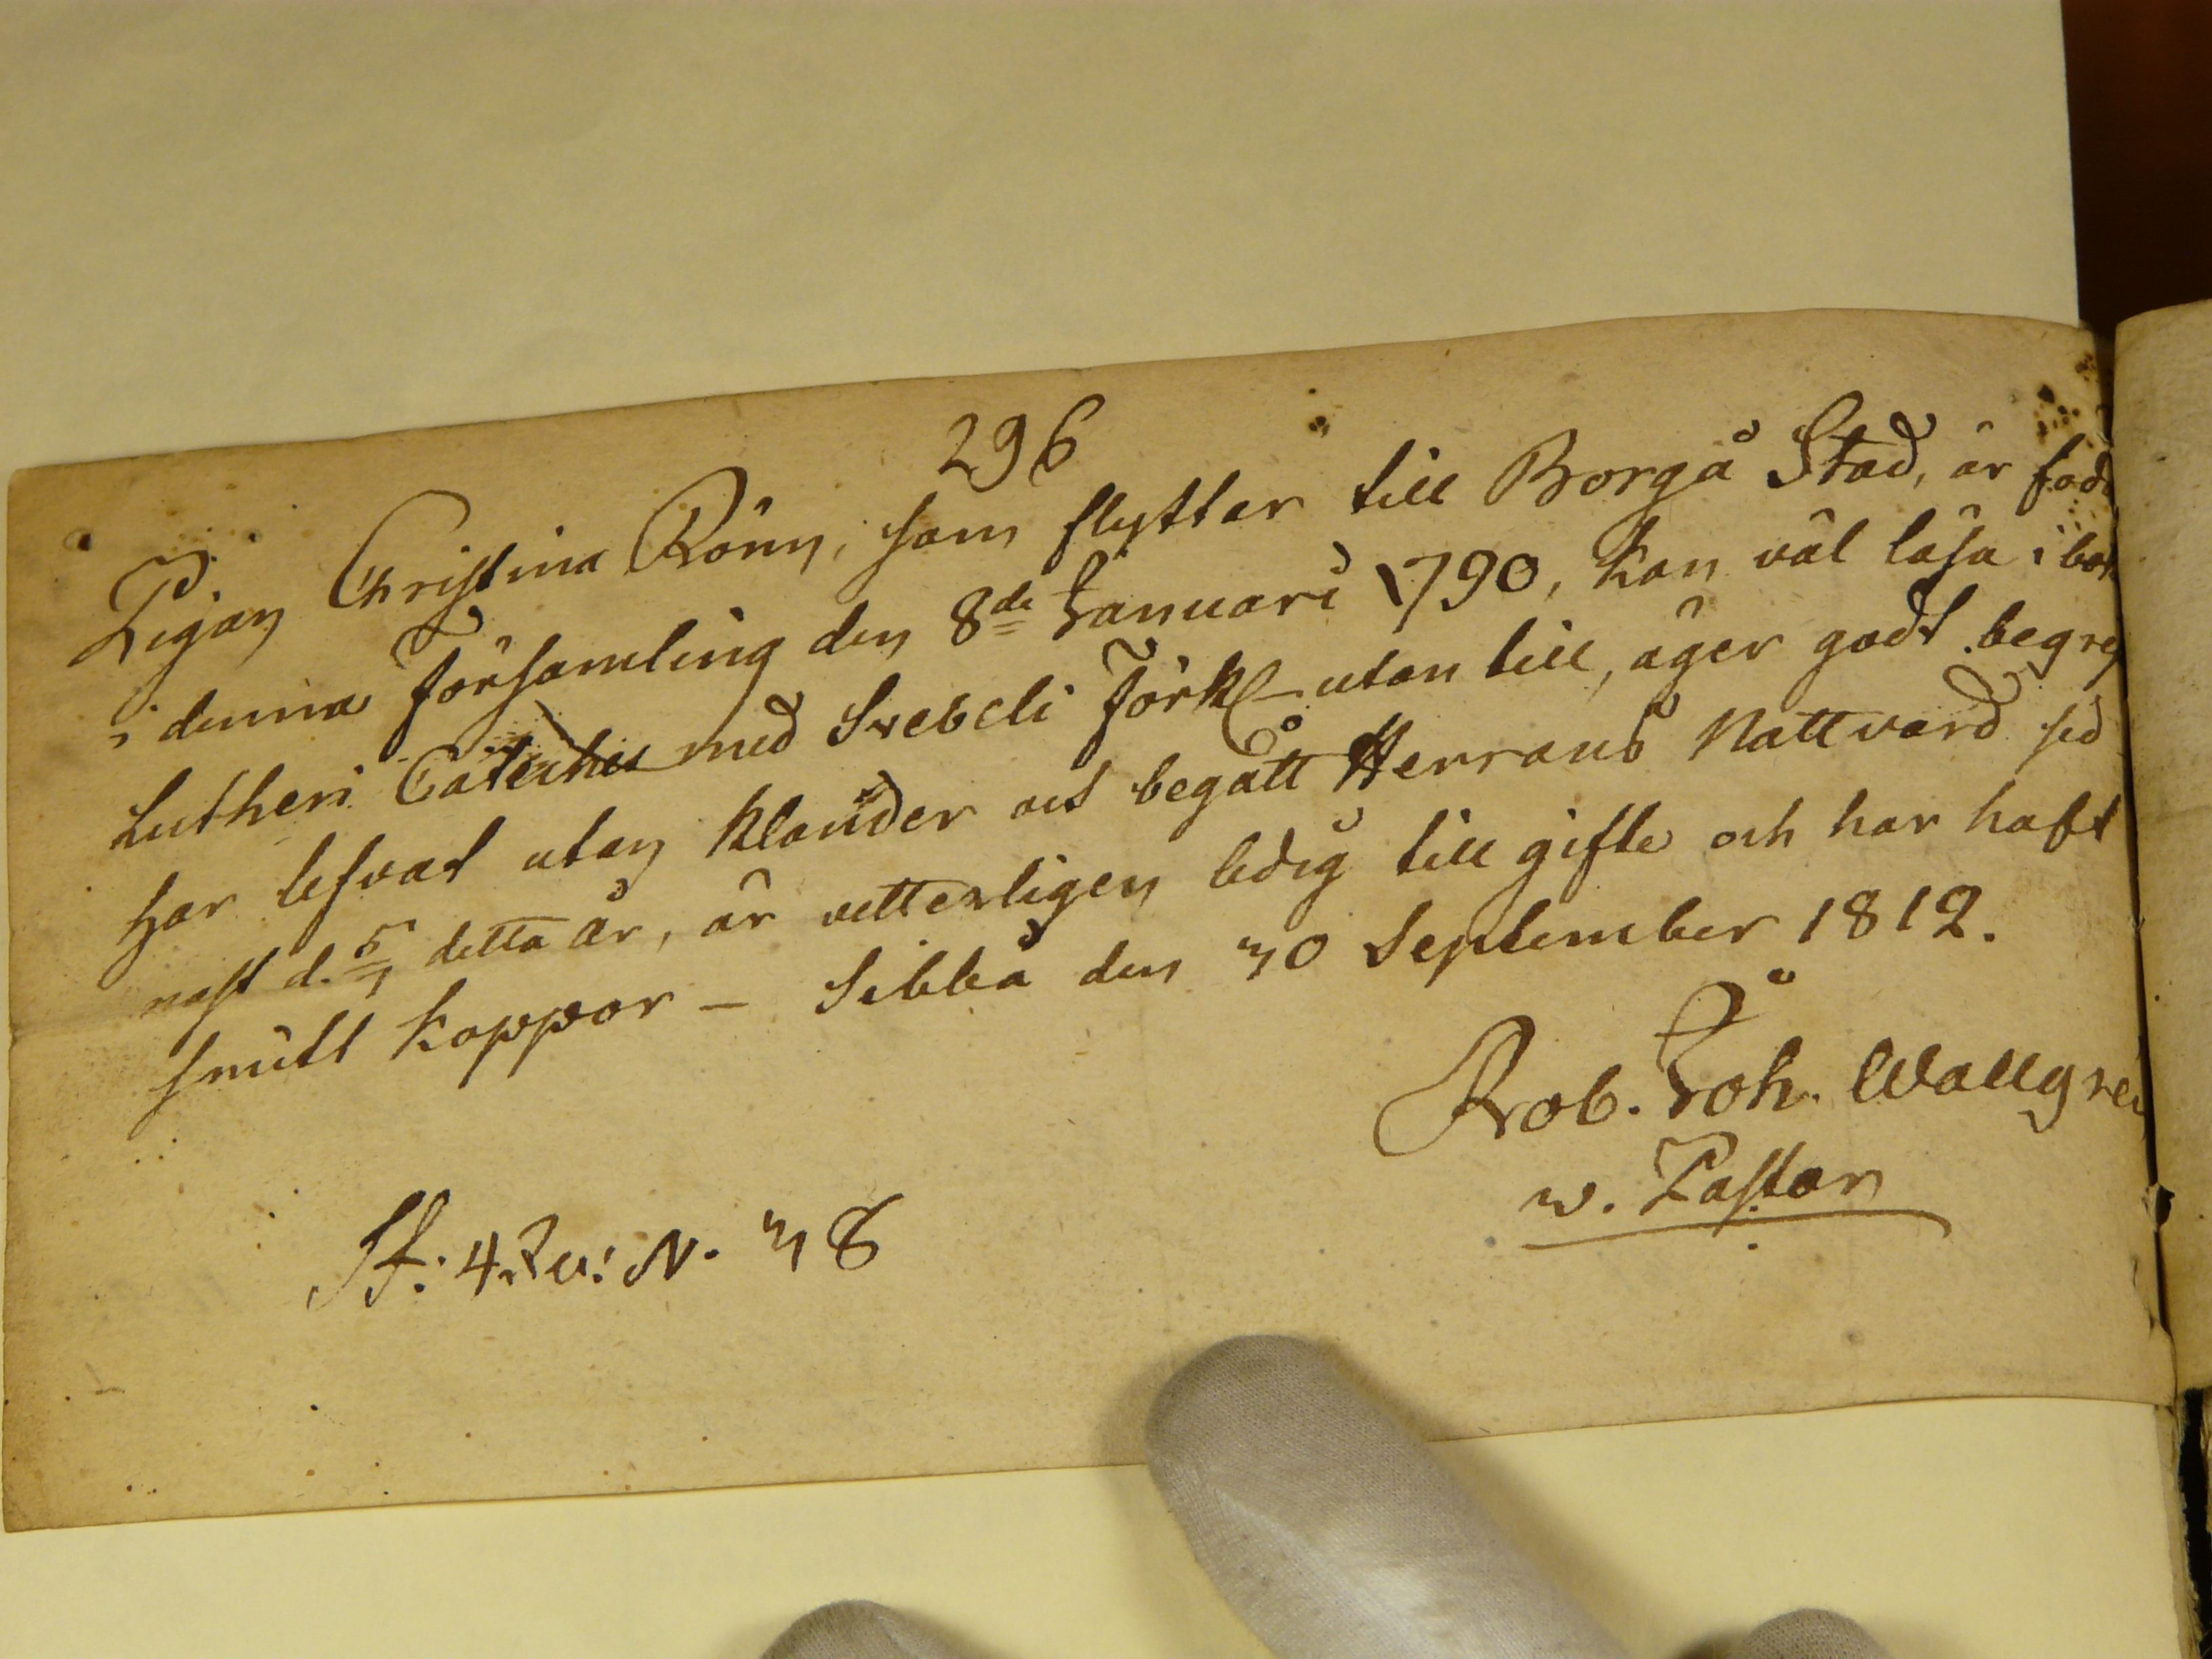 296
Pigan Christina Rönn, som flyttar till Borgå Stad, är född
i denna Församling den 8de Januari 1790, kan väl läsa i bok
Lutheri Cateches med Svebelii Förkl utan till, äger godt begrep
har lefvat utan klander och begått Herrans Nattvard sid
nast d. 5/7 detta år, är vetterligen ledig till gifte och har haft
smitt koppor – Sibbå den 30 September 1812.
Rob. Joh. Wallgren
v. Pastor
N. 38